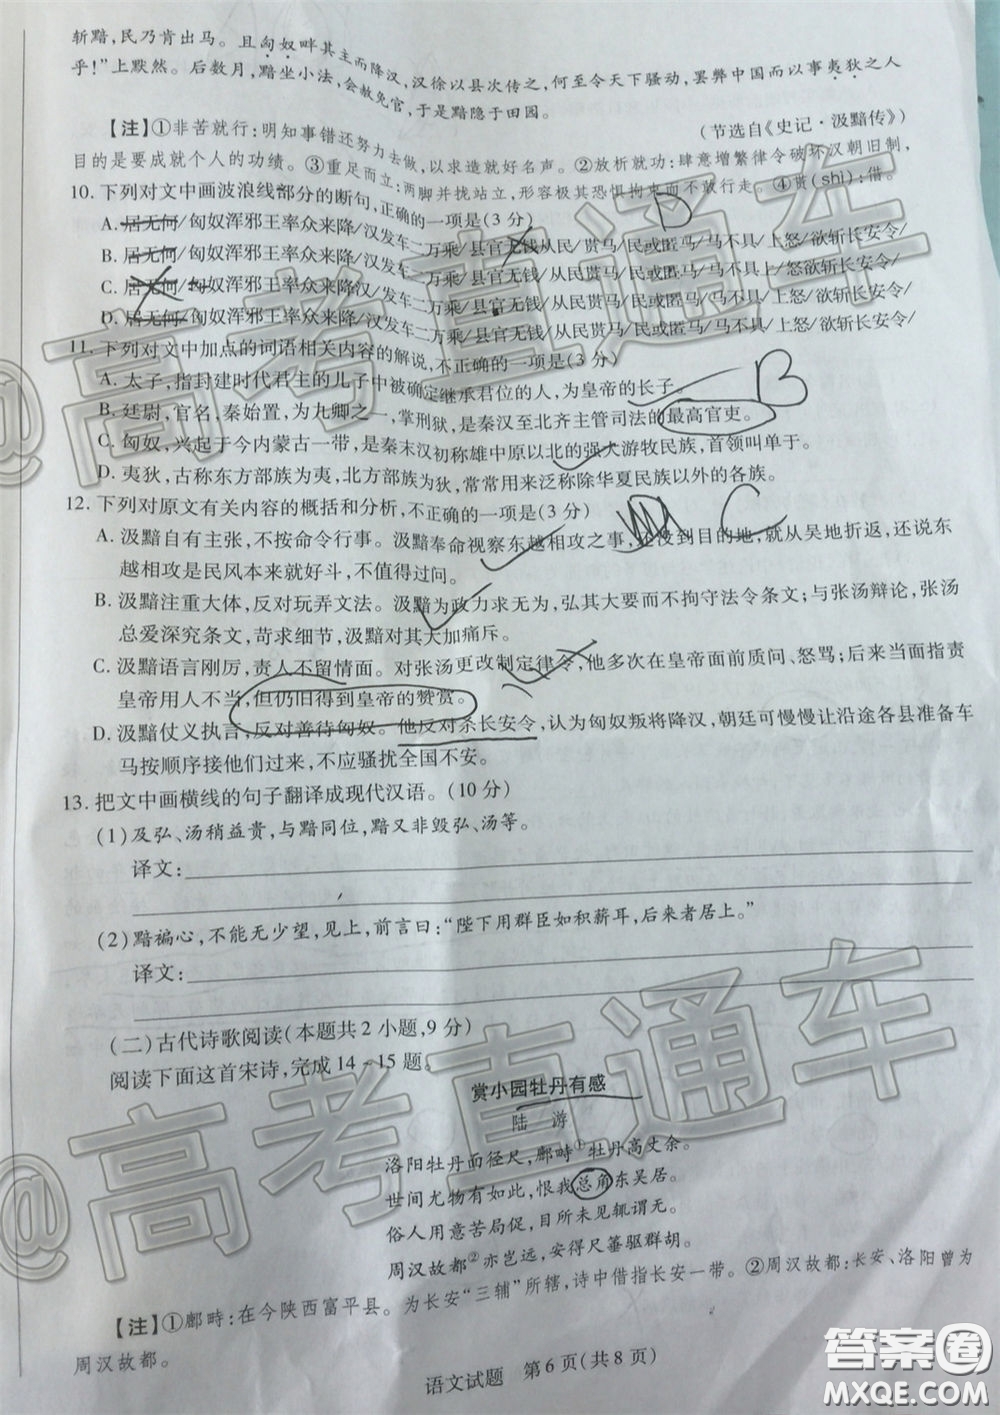 斩黯，民乃肯出马。且匈奴畔其主而降汉，汉徐以县次传之，何至令天下骚动，罢弊中国而以事夷狄之人
乎！”上默然。后数月，黯坐小法，会赦免官，于是黯隐于田园。
（节选自《史记·汲黯传》）
【注】①非苦就行：明知事错还努力去做，以求造就好名声。②放析就功：肆意增繁律令破坏汉朝旧制，
目的是要成就个人的功绩。③重足而立：两脚并拢站立，形容极其恐惧拘束而不敢行走。④贳(shì)：借。
10. 下列对文中画波浪线部分的断句，正确的一项是(3 分)
D
A. 居无何/匈奴浑邪王率众来降/汉发车二万乘/县官无钱从民/贳马/民或匿马/马不具/上怒/欲斩长安令/
B. 居无何/匈奴浑邪王率众来降/汉发车二万乘/县官无钱/从民贳马/民或匿马/马不具/上怒/欲斩长安令/
C. 居无何/匈奴浑邪王率众来降汉/发车二万乘/县官无钱/从民贳马/民或匿马/马不具/上怒/欲斩长安令/
D. 居无何/匈奴浑邪王率众来降/汉发车二万乘/县官无钱/从民贳马/民或匿马/马不具/上怒/欲斩长安令/
11. 下列对文中加点的词语相关内容的解说，不正确的一项是(3 分)
B
A. 太子，指封建时代君主的儿子中被确定继承君位的人，为皇帝的长子。
B. 廷尉，官名，秦始置，为九卿之一，掌刑狱，是秦汉至北齐主管司法的最高官吏。
C. 匈奴，兴起于今内蒙古一带，是秦末汉初称雄中原以北的强大游牧民族，首领叫单于。
D. 夷狄，古称东方部族为夷，北方部族为狄，常常用来泛称除华夏民族以外的各族。
12. 下列对原文有关内容的概括和分析，不正确的一项是(3 分)
C
A. 汲黯自有主张，不按命令行事。汲黯奉命视察东越相攻之事，还没到目的地，就从吴地折返，还说东
越相攻是民风本来就好斗，不值得过问。
B. 汲黯注重大体，反对玩弄文法。汲黯为政力求无为，弘其大要而不拘守法令条文；与张汤辩论，张汤
总爱深究条文，苛求细节，汲黯对其大加痛斥。
C. 汲黯语言刚厉，责人不留情面。对张汤更改制定律令，他多次在皇帝面前质问、怒骂；后来当面指责
皇帝用人不当，但仍旧得到皇帝的赞赏。
D. 汲黯仗义执言，反对善待匈奴。他反对杀长安令，认为匈奴叛将降汉，朝廷可慢慢让沿途各县准备车
马按顺序接他们过来，不应骚扰全国不安。
13. 把文中画横线的句子翻译成现代汉语。(10 分)
(1)及弘、汤稍益贵，与黯同位，黯又非毁弘、汤等。
译文：
(2)黯褊心，不能无少望，见上，前言曰：“陛下用群臣如积薪耳，后来者居上。”
译文：
(二)古代诗歌阅读(本题共 2 小题，9 分)
阅读下面这首宋诗，完成 14－15 题。
赏小园牡丹有感
陆 游
洛阳牡丹面径尺，鄜畤①牡丹高丈余。
世间尤物有如此，恨我总角东吴居。
俗人用意苦局促，目所未见辄谓无。
周汉故都②亦岂远，安得尺箠驱群胡。
【注】①鄜畤：在今陕西富平县。为长安“三辅”所辖，诗中借指长安一带。②周汉故都：长安、洛阳曾为
周汉故都。
语文试题 第 6 页(共 8 页)
@高考直通车
@高考直通车
答案圈
MXQE.COM